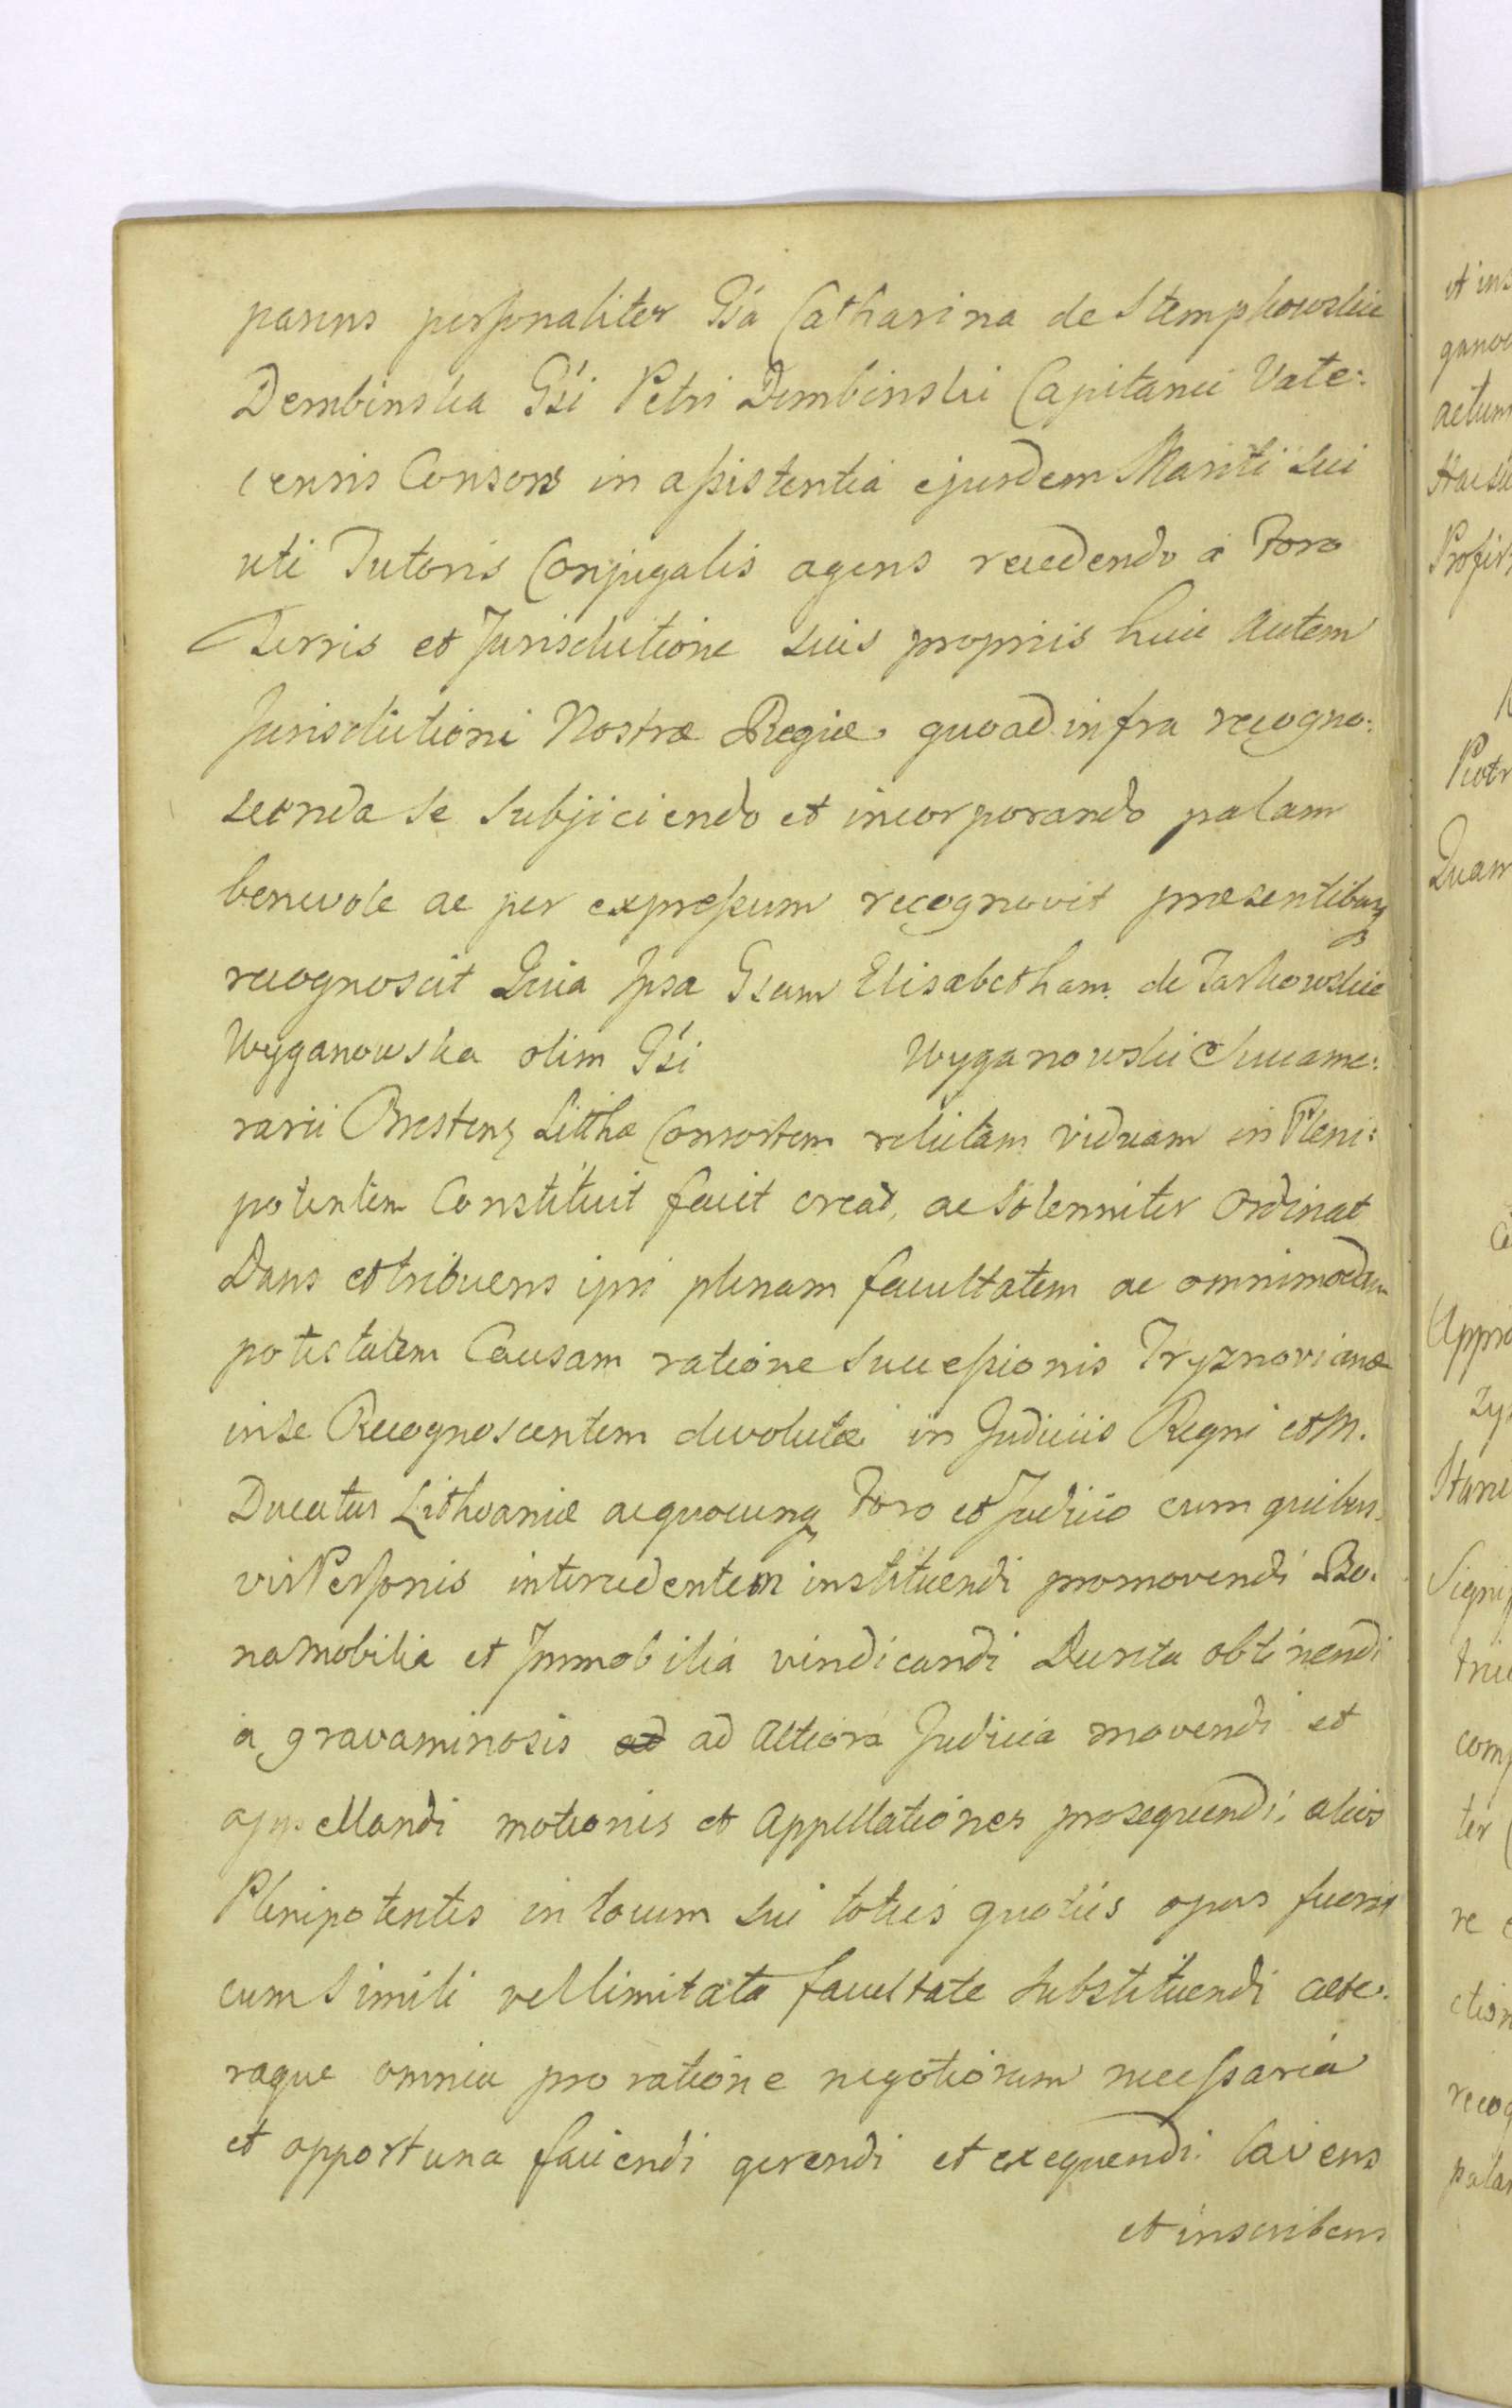 parens personaliter Gsa Catharina de Stempkowskie
Dembinska Gsi Petri Dembinski Capitanei Vate:
censis Consors in assistentia ejusdem Mariti sui
uti Tutoris Conjugalis agens recedendo a Foro
Terris et Jurisdictione suis propriis huic autem
Jurisdictioni Nostræ Regiæ quoad infra recogno:
scenda se subjiciendo et incorporando palam
benevole ac per expressum recognovit præsentibusq
recognoscit Quia Ipsa Gsam Elisabetham de Tarkowskie
Wyganowska olim Gsi Wyganowski Succame:
rarii Brestens Litthæ Consortem relictam viduam in Pleni:
potentem Constituit facit creat, ac solenniter ordinat
Dans et tribuens ipsi plenam facultatem ac omnimodam
potestatem Causam ratione successionis Tryznovianæ
in se Recognoscentem devolutæ in Judiciis Regni et M.
Ducatus Lithvaniæ ac quocunq Foro et Judicio cum quibus.
vis Personis intercedentem instituendi promovendi Bo.
na Mobilia et Immobilia vindicandi Decreta obtinendi
a gravaminosis ad ad altiora Judicia movendi et
appellandi motiones et Appellationes prosequendi, alios
Plenipotentes in locum sui toties quoties opus fuerit
cum simili vel limitata facultate substituendi cæte.
raque omnia pro ratione negotiorum necessaria
et opportuna faciendi gerendi et exequendi. Cavens
et inscribens
et ins
actum
Piotr
Quam
Appro
com
ter
re
ction
recog
palam